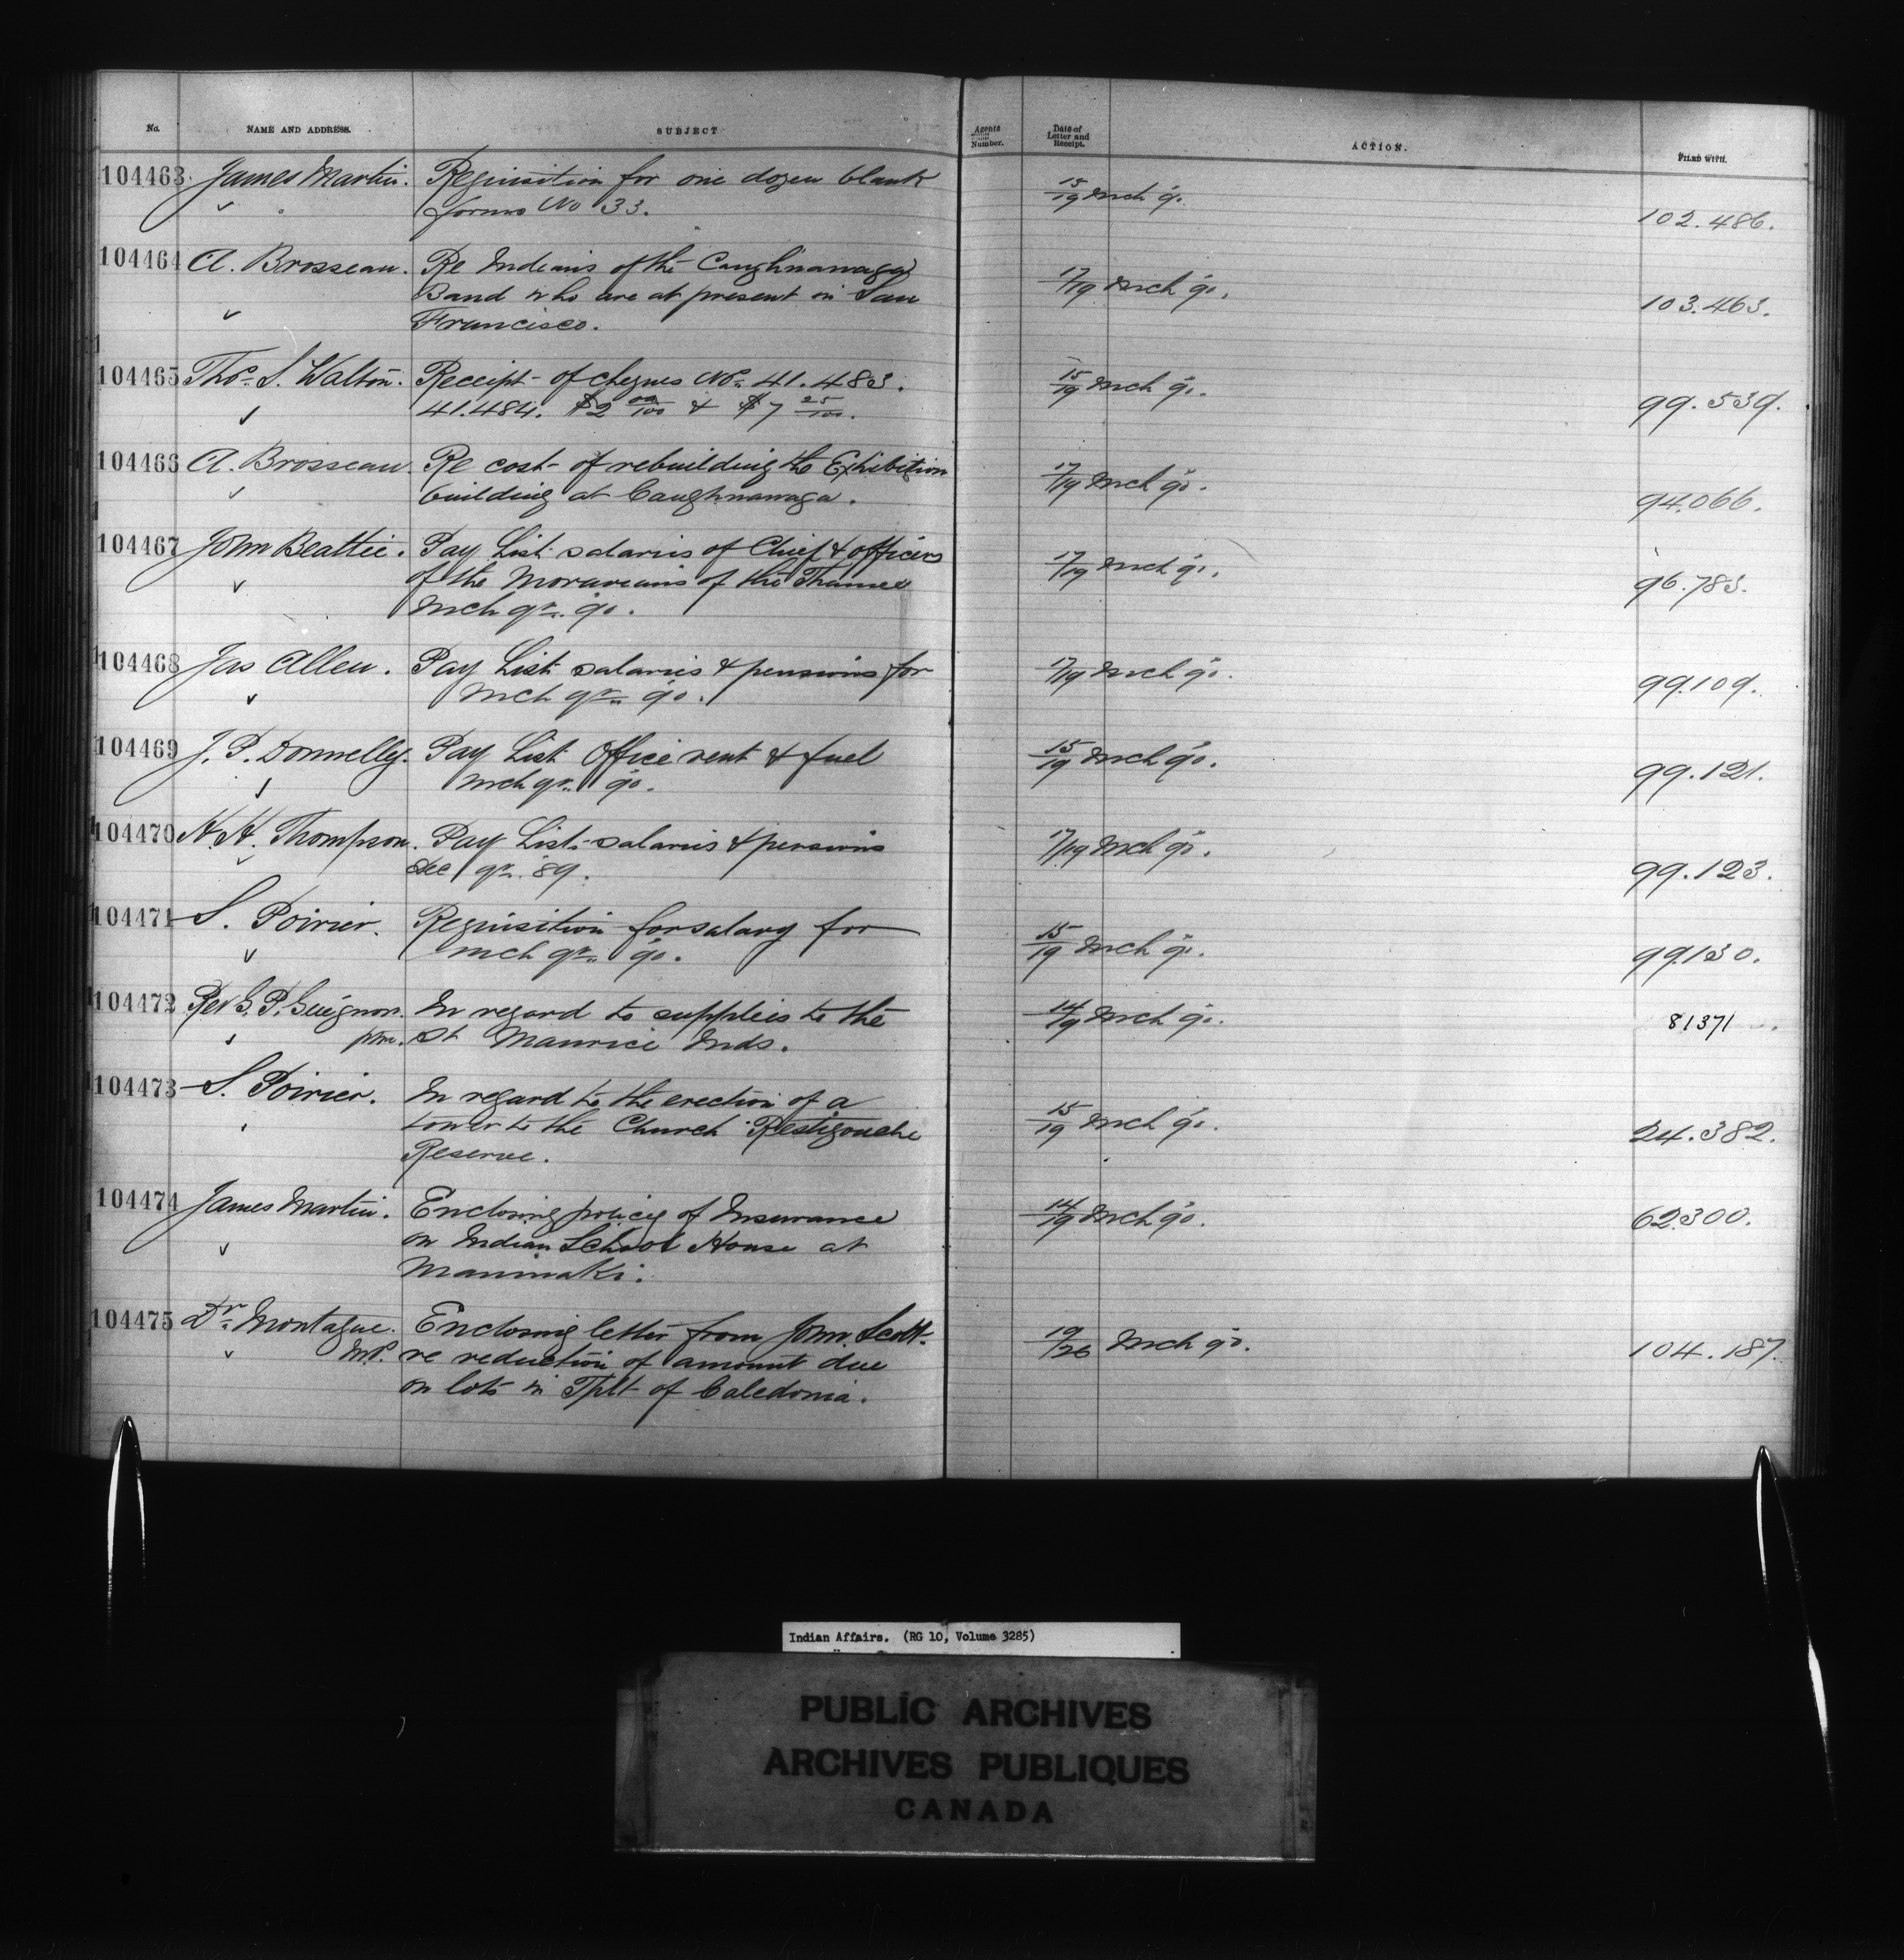 No. NAME AND ADDRESS. SUBJECT Agents Number. Date of Letter and Receipt. ACTION. FILED WITH.
104463 James Martin. Requisition for one dozen blank 15/19 Mch 90.
forms No 33. 102.486.
104464 A. Brosseau. Re Indians of the Caughnawaga 17/19 Mch 90.
Band who are at present in San 103.463.
Francisco.
104465 Thos. S. Walton. Receipt of cheques Nos. 41.483. 15/19 Mch 90.
41.484. $2 00/100 & $7 25/100. 99.539.
104466 A. Brosseau. Re cost of rebuilding the Exhibition 17/19 Mch 90.
building at Caughnawaga. 94.066.
104467 John Beattie. Pay List salaries of Chief & officers 17/19 Mch 90.
of the Moravians of the Thames 96.783.
Mch qr. 90.
104468 Jas Allen. Pay List salaries & pensions for 17/19 Mch 90.
Mch qr. 90. 99.109.
104469 J. P. Donnelly. Pay List Office rent & fuel 15/19 Mch 90.
Mch qr. 90. 99.121.
104470 H. H. Thompson. Pay List salaries & pensions 17/19 Mch 90.
Dec qr. 89. 99.123.
104471 S. Poirier. Requisition for salary for 15/19 Mch 90.
Mch qr. 90. 99.130.
104472 Rev G. P. Guignon. In regard to supplies to the 14/19 Mch 90. 81371
ptre. St Maurice Inds.
104473 S. Poirier. In regard to the erection of a 15/19 Mch 90.
tower to the Church Restigouche 24.382.
Reserve.
104474 James Martin. Enclosing policy of Insurance 14/19 Mch 90. 62.300.
on Indian School House at
Maniwaki.
104475 Dr. Montague. Enclosing letter from John Scott 19/26 Mch 90.
M.P. re reduction of amount due 104.187.
on lots in Tplt of Caledonia.
Indian Affairs. (RG 10, Volume 3285)
PUBLIC ARCHIVES
ARCHIVES PUBLIQUES
CANADA